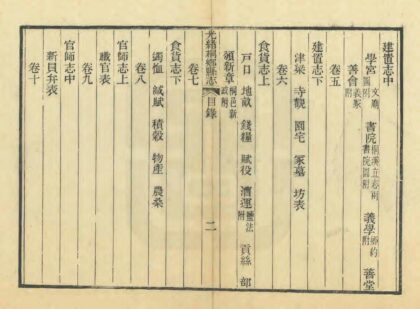 建置志中
學宮 文廟圖附 書院 桐溪立志兩書院圖附 義學 鄉約附 善堂
善會 義冢附
卷五
建置志下
津梁 寺觀 園宅 冢墓 坊表
卷六
食貨志上
戶口 地畝 錢糧 賦役 漕運 鹽法附 貢絲
新章 桐邑新政附
光緒桐鄉縣志 目錄 二
卷七
食貨志下
蠲恤 減賦 積穀 物產 農桑
卷八
官師志上
職官表
卷九
官師志中
新員弁表
卷十